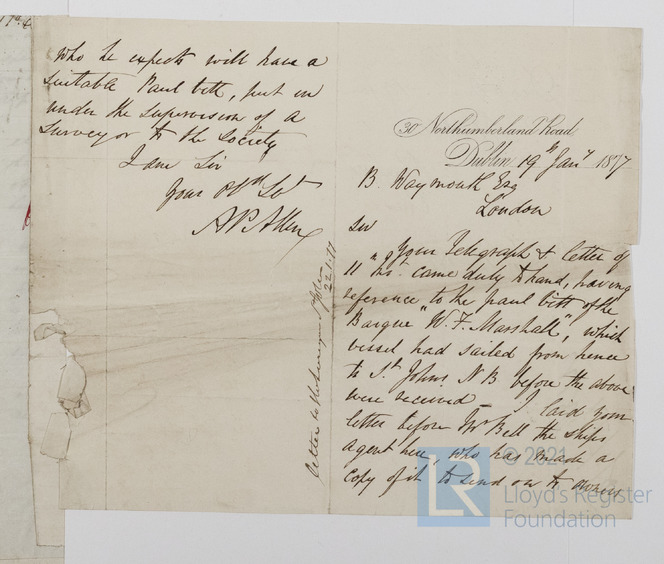 30 Northumberland Road,
Dublin 19th Jany 1877
B. Waymouth Esq
London
Sir
Your Telegraph & letter of
11 Inst. came duly to hand, having
reference to the paul bitt of the
Barque "W. F. Marshall", which
vessel had sailed from hence
to St Johns NB before the above
were received - I laid your
letter before Mr Bell the ships
agent here, who has made a
copy of it to send on to owner
who he expects will have a
suitable Paul bitt, put in
under the supervision of a
Surveyor to the Society
I am Sir
Your Obt Svt
A P Allen
letter to
22.1.77
17
© 2021
LR
Lloyd's Register
Foundation